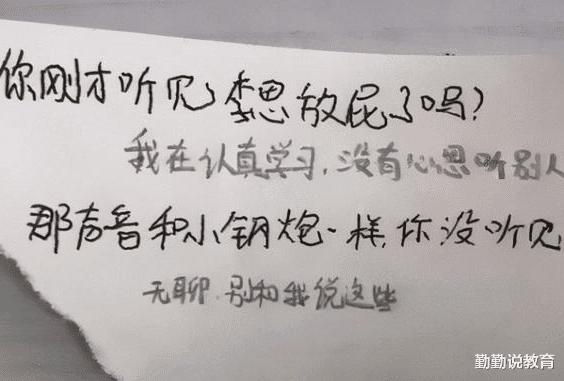 你刚才听见李思放屁了吗?
我在认真学习,没有心思听别人
那声音和小钢炮一样,你没听见
无聊.别和我说这些
勤勤说教育